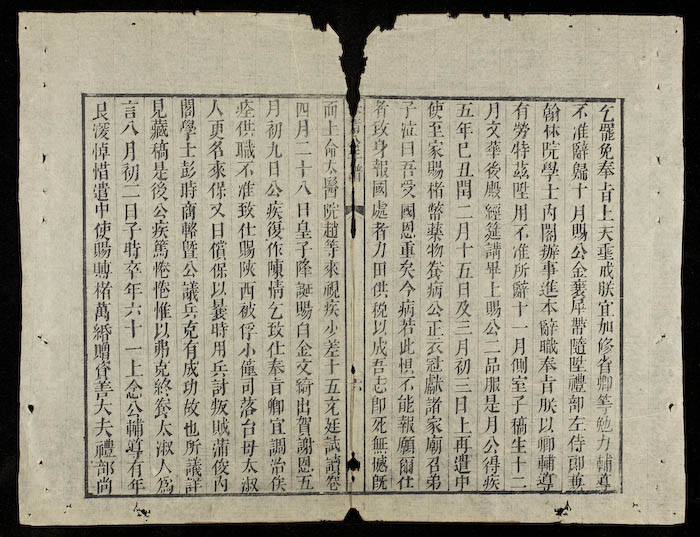 乞罷免奉旨上天垂戒朕宜加修省卿等勉力輔導
不准辭歸十月賜公金襲犀帶隨陞禮部左侍郎兼
翰林院學士內閣辦事進本辭職奉旨朕以卿輔導
有勞特茲陞用不准所辭十一月側室子稿生十二
月文華後殿經筵講畢上賜公二品服是月公得疾
五年己丑閏二月十五日及三月初三日上再遣中
使至家賜楮幣藥物養病公正衣冠獻諸家廟召弟
子泣曰吾受國恩重矣今病若此恨不能報願爾仕
者致身報國處者力田供稅以成吾志即死無憾旣
譜
六
而上命太醫院趙等來視疾少差十五充廷試讀卷
四月二十八日皇子隆誕賜白金文綺出賀謝恩五
月初九日公疾復作陳情乞致仕奉旨卿宜調治俟
痊供職不准致仕賜陝西被俘小僮司落台母太淑
人更名來保又曰償保以曩時用兵討叛賊蒲俊內
閣學士彭時商輅暨公議兵克有成功故也所議詳
見藏稿是後公疾篤惓惓惟以弗克終養太淑人爲
言八月初二日子時卒年六十一上念公輔導有年
良深悼惜遣中使賜賻楮萬緡贈資善大夫禮部尚